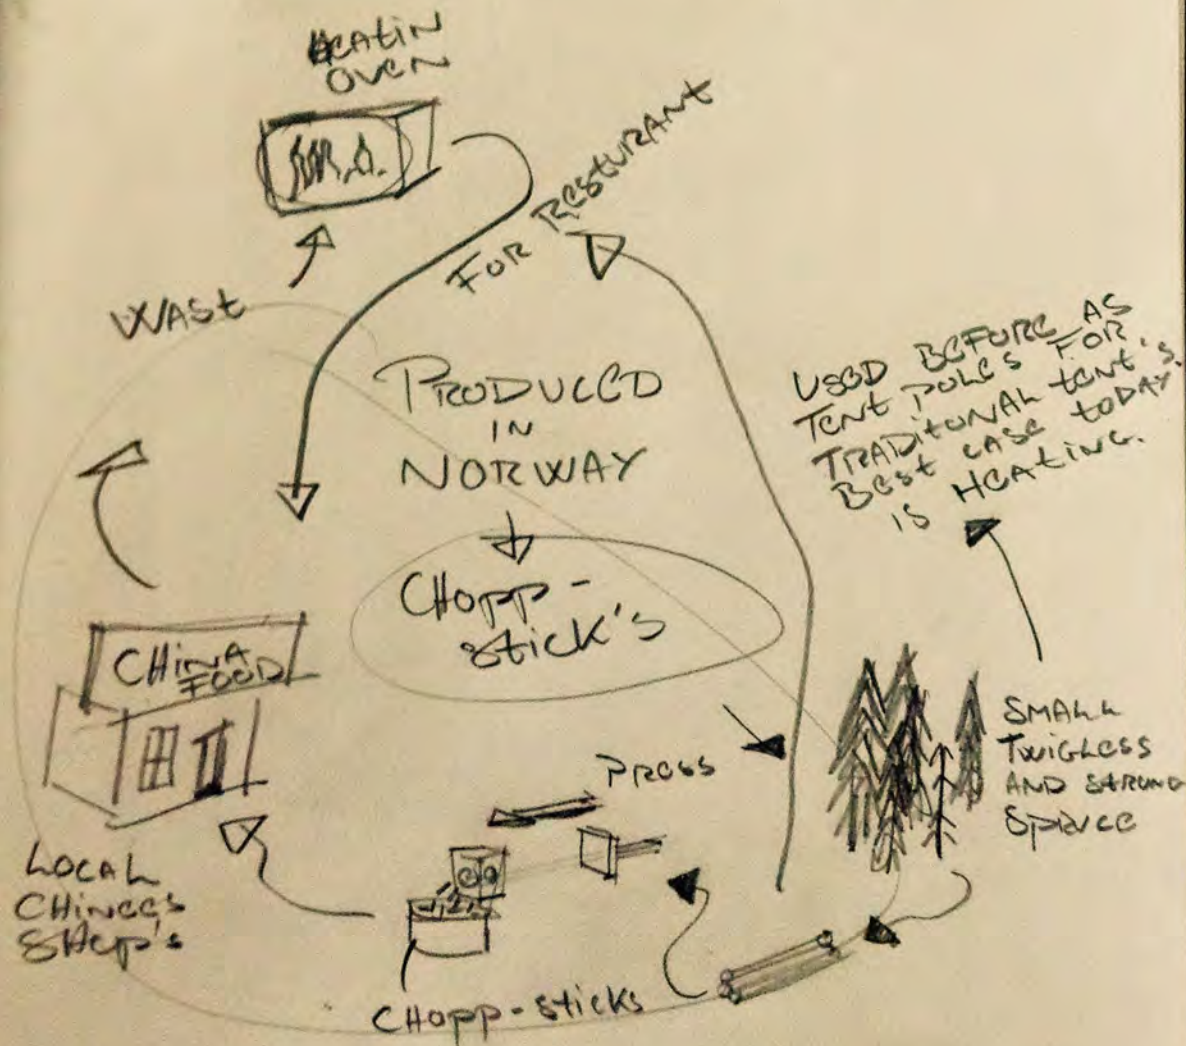 HEATIN
OVEN
FOR RESTURANT
WAST
PRODUCED
IN
NORWAY
CHOPP-
stick's
USED BEFORE AS
TENT POLES FOR
TRADITONAL tENt's.
BEST CASE TODAY
IS HEATING.
CHINA
FOOD
PRESS
SMALL
TWIGLESS
AND STRONG
SPRUCE
LOCAL
CHINEES
SHOP's
CHOPP-sticks